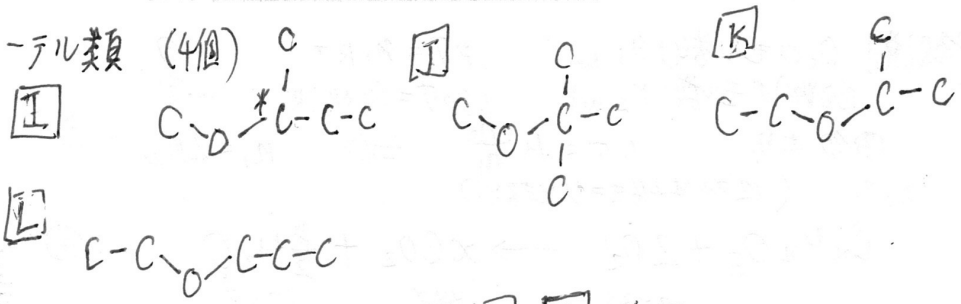 ーテル類 (4個)
I
C-O-C*(-C)-C-C
J
C-O-C(-C)(-C)-C
K
C-C-O-C(-C)-C
L
C-C-O-C-C-C